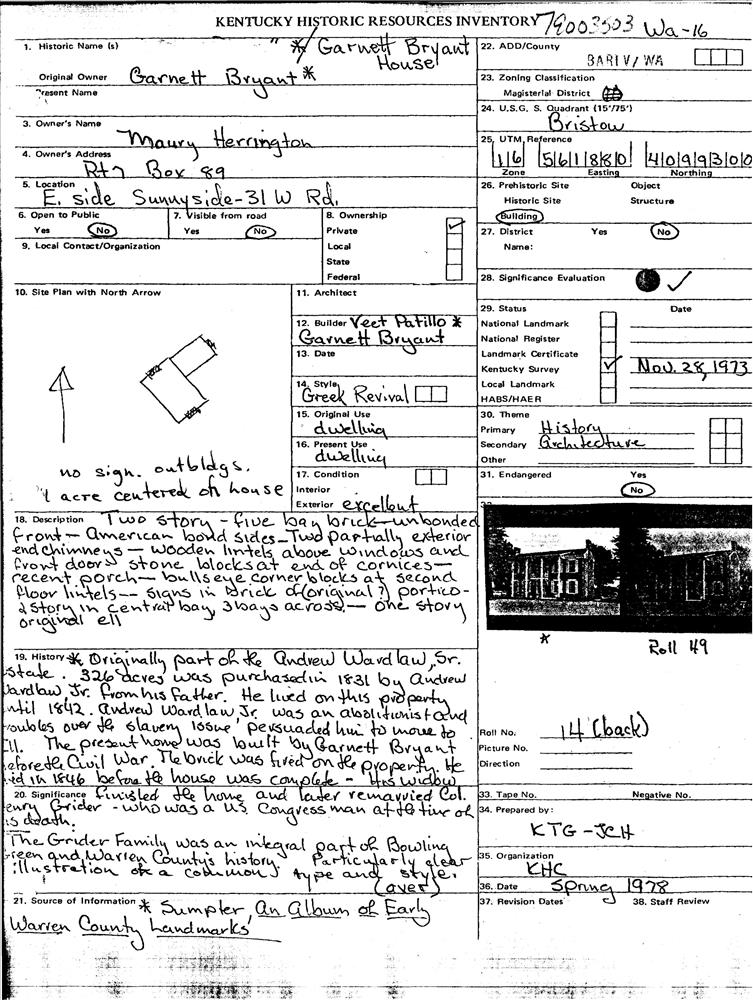 KENTUCKY HISTORIC RESOURCES INVENTORY 79003503 Wa-16
1. Historic Name (s)
" * Garnett Bryant
House
Original Owner Garnett Bryant *
Present Name
3. Owner's Name
Maury Herrington
4. Owner's Address
Rt 7 Box 89
5. Location
E. side Sunnyside-31 W Rd.
6. Open to Public
Yes No
7. Visible from road
Yes No
8. Ownership
Private ✓
Local
State
Federal
9. Local Contact/Organization
10. Site Plan with North Arrow
no sign. outbldgs.
1 acre centered on house
11. Architect
12. Builder Veet Patillo *
Garnett Bryant
13. Date
14. Style
Greek Revival
15. Original Use
dwelling
16. Present Use
dwelling
17. Condition
Interior
Exterior excellent
18. Description Two story - five bay brick - unbonded
front - American bond sides - Two partially exterior
end chimneys - wooden lintels above windows and
front door - stone blocks at end of cornices -
recent porch - bullseye corner blocks at second
floor lintels - signs in brick of (original?) portico -
2 story in central bay, 3 bays across. - one story
original ell
19. History * Originally part of the Andrew Wardlaw, Sr.
State. 326 acres was purchased in 1831 by Andrew
Wardlaw Jr. from his father. He lived on this property
until 1842. Andrew Wardlaw Jr. was an abolitionist and
troubles over the slavery issue, persuaded him to move to
Ill. The present home was built by Garnett Bryant
before the Civil War. The brick was fired on the property. He
died in 1846 before the house was complete - His widow
20. Significance finished the home and later remarried Col.
Henry Grider - who was a U.S. Congressman at the time of
his death.
The Grider Family was an integral part of Bowling
Green and Warren County's history. Particularly clear
illustration of a common type and style.
(over)
21. Source of Information * Sumpter, An Album of Early
Warren County Landmarks
22. ADD/County
BARIV/WA
23. Zoning Classification
Magisterial District
24. U.S.G. S. Quadrant (15'/75')
Bristow
25. UTM Reference
16 561880 4099300
Zone Easting Northing
26. Prehistoric Site Object
Historic Site Structure
Building
27. District Yes No
Name:
28. Significance Evaluation ✓
29. Status Date
National Landmark
National Register
Landmark Certificate
Kentucky Survey ✓ Nov. 28, 1973
Local Landmark
HABS/HAER
30. Theme
Primary History
Secondary Architecture
Other
31. Endangered Yes
No
32.
*
Roll 49
Roll No. 14 (back)
Picture No.
Direction
33. Tape No. Negative No.
34. Prepared by:
KTG - JCH
35. Organization
KHC
36. Date Spring 1978
37. Revision Dates 38. Staff Review